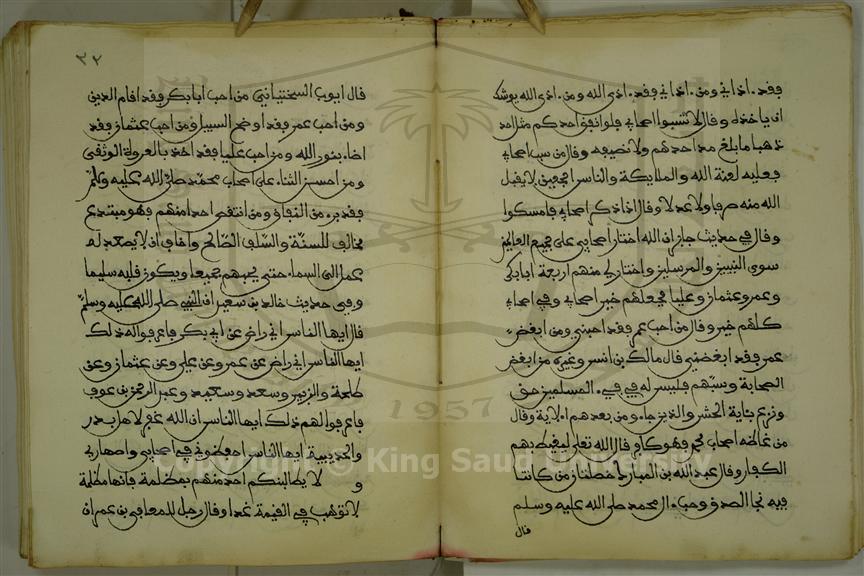 فقد ءاذاني ومن ءاذاني فقد ءاذى الله ومن ءاذى الله يوشك
ان ياخذه وقال لا تسبوا اصحابي فلو انفق احدكم مثل احد
ذهبا ما بلغ مد احدهم ولا نصيفه وقال من سب اصحابي
فعليه لعنة الله والملايكة والناس اجمعين لا يقبل
الله منه صرفا ولا عدلا وقال اذا ذكر اصحابي فامسكوا
وقال في حديث جابر ان الله اختار اصحابي على جميع العالمين
سوى النبيين والمرسلين واختار لي منهم اربعة ابابكر
وعمر وعثمان وعليا فجعلهم خير اصحابي وفي اصحابي
كلهم خير وقال من احب عمر فقد احبني ومن ابغض
عمر فقد ابغضني قال مالك بن انس وغيره من ابغض
الصحابة وسبهم فليس له في فيء المسلمين حق
ونزع بئاية الحشر والذين جاءو من بعدهم الاية وقال
من غاظه اصحاب محمد فهو كافر قال الله تعلى ليغيظ بهم
الكفار وقال عبد الله بن المبارك خصلتان من كانتا
فيه نجا الصدق وحب ءال محمد صلى الله عليه وسلم
قال
٣٢
قال ايوب السختياني من احب ابابكر فقد اقام الدين
ومن احب عمر فقد اوضح السبيل ومن احب عثمان فقد
اضاء بنور الله ومن احب عليا فقد اخذ بالعروة الوثقى
ومن احسن الثناء على اصحاب محمد صلى الله عليه وسلم
فقد برء من النفاق ومن انتقص احدا منهم فهو مبتدع
مخالف للسنة والسلف الصالح واخاف ان لا يصعد له
عمل الى السماء حتى يحبهم جميعا ويكون قلبه سليما
وفي حديث خالد بن سعيد ان النبي صلى الله عليه وسلم
قال ايها الناس اني راض عن ابي بكر فاعرفوا له ذلك
ايها الناس اني راض عن عمر وعن علي وعن عثمان وعن
طلحة والزبير وسعد وسعيد وعبد الرحمن بن عوف
فاعرفوا لهم ذلك ايها الناس ان الله غفر لاهل بدر
والحديبية ايها الناس احفظوني في اصحابي واصهاري
و لا يطالبنكم احد منهم بمظلمة فانها مظلمة
لا توهب في القيمة غدا وقال رجل للمعافى بن عمران
1957
Copyright © King Saud University